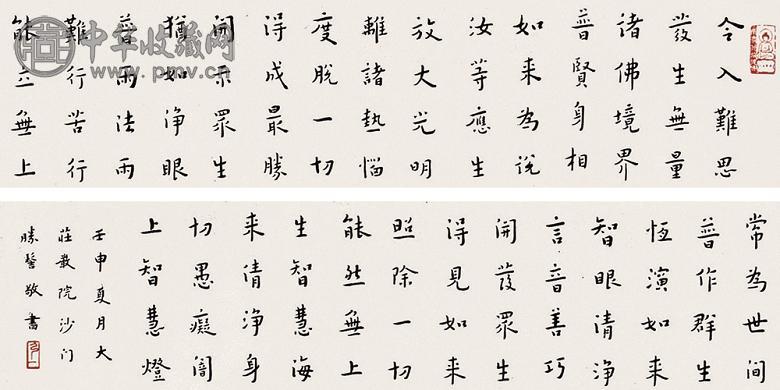 令入難思
發生無量
諸佛境界
普賢身相
如來為說
汝等應生
放大光明
離諸熱惱
度脫一切
得成最勝
開示眾生
猶如淨眼
普雨法雨
難行苦行
能立無上
常為世間
普作群生
恆演如來
智眼清淨
言音善巧
開發眾生
得見如來
照除一切
能然無上
生智慧海
來清淨身
切愚癡闇
上智慧燈
壬申夏月大
莊嚴院沙门
勝髻敬書
中华收藏网